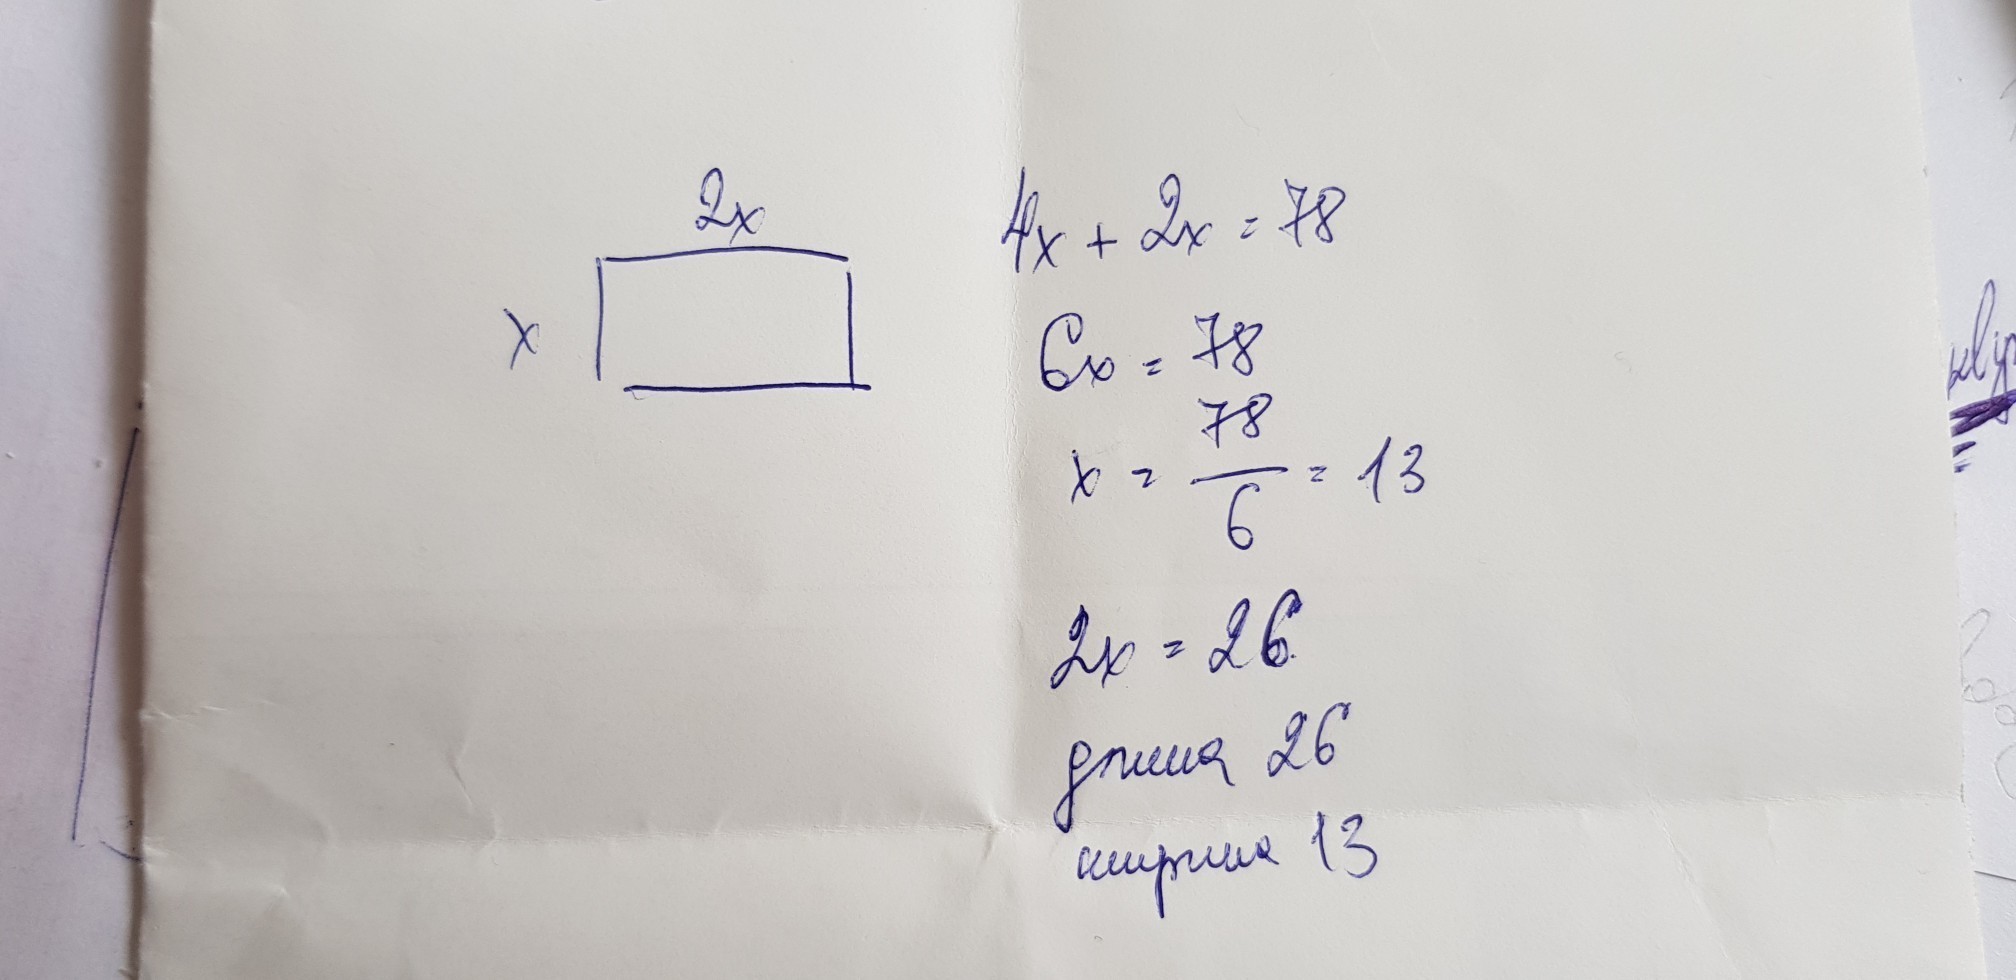 2x
x
4x + 2x = 78
6x = 78
x = 78/6 = 13
2x = 26
длина 26
ширина 13